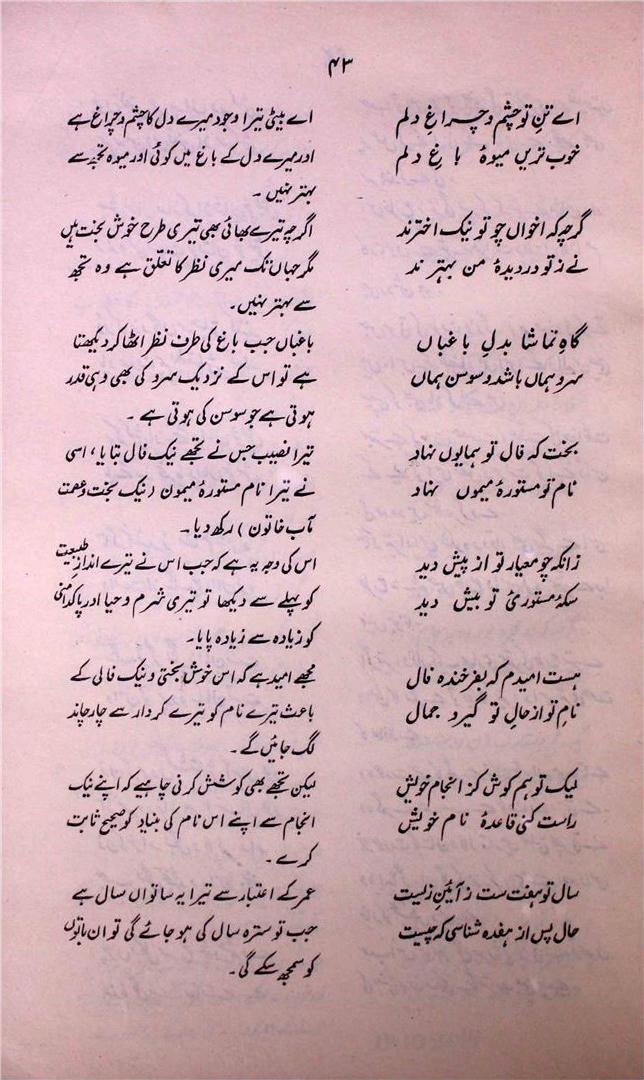 ۴۳
اے تنِ تو چشم و چراغِ دلم
خوب تریں میوۂ باغِ دلم
گرچہ کہ اخواں چو تو نیک اخترند
نے ز تو در دیدۂ من بہتر ند
گاہِ تماشا بدلِ باغباں
سرو ہماں باشد و سوسن ہماں
بخت کہ فال تو ہمایوں نہاد
نام تو مستورۂ میموں نہاد
زانکہ چو معیار تو از پیش دید
سکۂ مستوریٔ تو بیش دید
ہست امیدم کہ بفر خندہ فال
نامِ تو از حالِ تو گیرد جمال
لیک تو ہم کوش کز انجام خویش
راست کنی قاعدۂ نام خویش
سال تو ہفت ست ز آئینِ زلیست
حال پس از ہفدہ شناسی کہ چیست
اے بیٹی تیرا وجود میرے دل کا چشم و چراغ ہے
اور میرے دل کے باغ میں کوئی اور میوہ تجھ سے
بہتر نہیں ۔
اگرچہ تیرے بھائی بھی تیری طرح خوش بخت ہیں
مگر جہاں تک میری نظر کا تعلق ہے وہ تجھ
سے بہتر نہیں۔
باغباں جب باغ کی طرف نظر اٹھا کر دیکھتا
ہے تو اس کے نزدیک سرو کی بھی وہی قدر
ہوتی ہے جو سوسن کی ہوتی ہے ۔
تیرا نصیب جس نے تجھے نیک فال بنایا، اسی
نے تیرا نام مستورۂ میمون (نیک بخت و عصمت
مآب خاتون) رکھ دیا۔
اس کی وجہ یہ ہے کہ جب اس نے تیرے اندازِ طبیعت
کو پہلے سے دیکھا تو تیری شرم و حیا اور پاکدامنی
کو زیادہ سے زیادہ پایا۔
مجھے امید ہے کہ اس خوش بختی و نیک فالی کے
باعث تیرے نام کو تیرے کردار سے چار چاند
لگ جائیں گے۔
لیکن تجھے بھی کوشش کرنی چاہیے کہ اپنے نیک
انجام سے اپنے اس نام کی بنیاد کو صحیح ثابت
کرے ۔
عمر کے اعتبار سے تیرا یہ ساتواں سال ہے
جب تو سترہ سال کی ہو جائے گی تو ان باتوں
کو سمجھ سکے گی۔